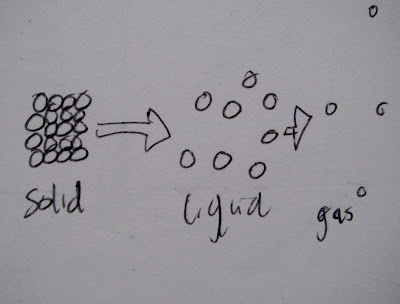 solid
liquid
gas